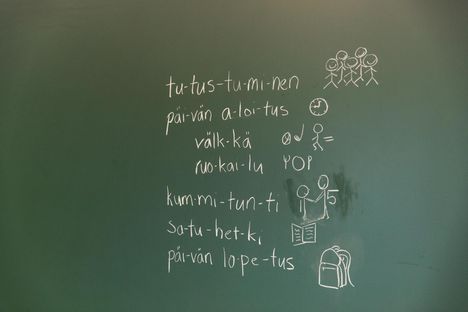 tu-tus-tu-mi-nen
päi-vän a-loi-tus
välk-kä
ruo-kai-lu
kum-mi-tun-ti
sa-tu-het-ki
päi-vän lo-pe-tus